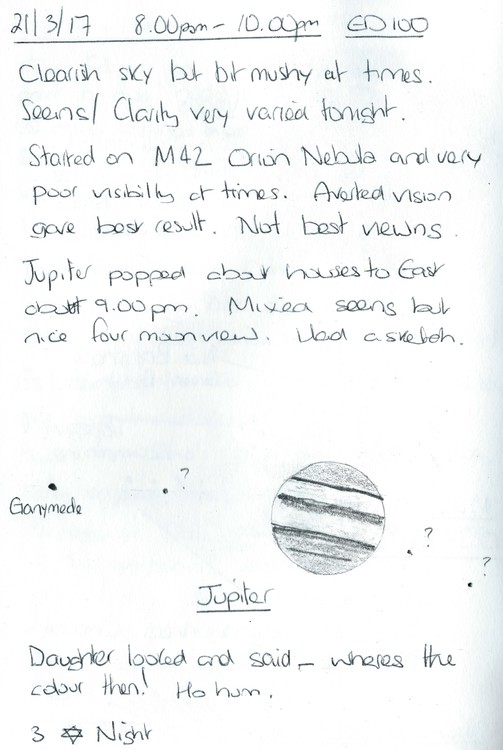 21/3/17 8.00pm - 10.00pm ED100
Clearish sky but bit mushy at times.
Seeing/ Clarity very varied tonight.
Started on M42 Orion Nebula and very
poor visibility at times. Averted vision
gave best result. Not best viewing.
Jupiter popped about houses to East
about 9.00pm. Mixed seeing but
nice four moon view. Had a sketch.
?
Ganymede
?
?
Jupiter
Daughter looked and said - wheres the
colour then! Ho hum.
3 ✡ Night